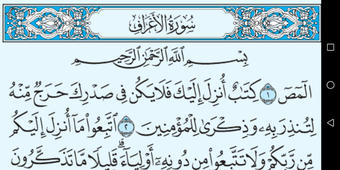 سُورَةُ الْأَعْرَافِ
بِسْمِ اللَّهِ الرَّحْمَٰنِ الرَّحِيمِ
الٓمٓصٓ ١ كِتَابٌ أُنزِلَ إِلَيْكَ فَلَا يَكُن فِي صَدْرِكَ حَرَجٌ مِّنْهُ
لِتُنذِرَ بِهِ وَذِكْرَىٰ لِلْمُؤْمِنِينَ ٢ اتَّبِعُوا مَا أُنزِلَ إِلَيْكُم
مِّن رَّبِّكُمْ وَلَا تَتَّبِعُوا مِن دُونِهِ أَوْلِيَاءَ ۗ قَلِيلًا مَّا تَذَكَّرُونَ